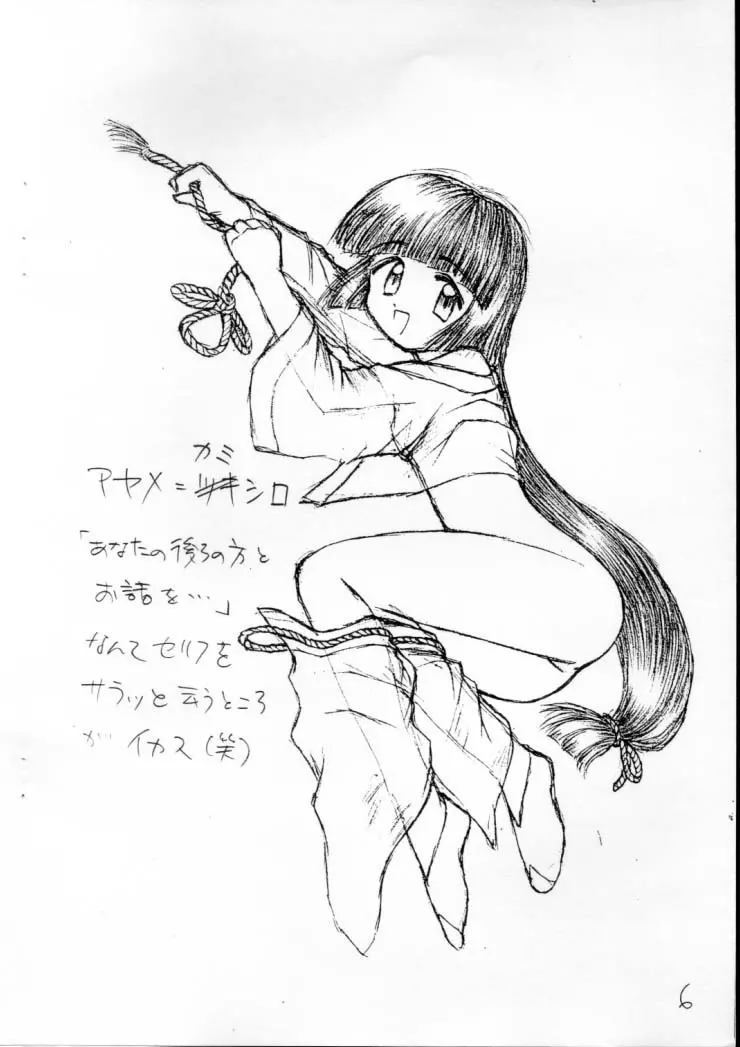 カミ
アヤメ=シロ
「あなたの後ろの方と
お話を…」
なんてセリフを
サラッと言うところ
が イカス(笑)
6